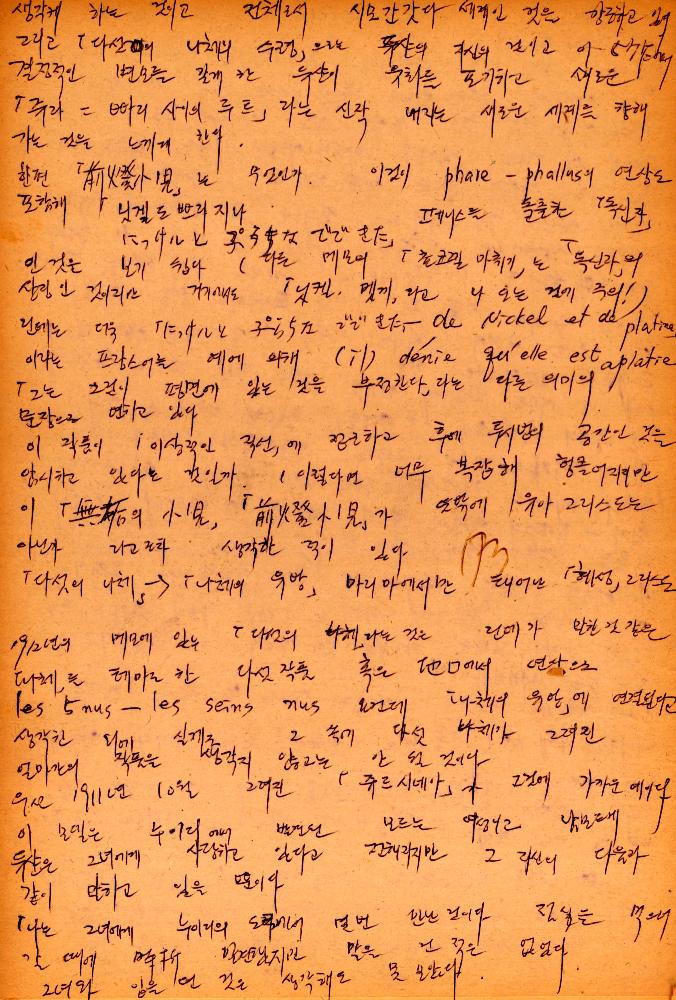 생각케 하는 것이고 전체로서 시모간갓다 세계인 것은 항공하고 있어
그리고 「다섯의 나체의 수렁」으로는 독산의 혁신의 것이고 아
결정적인 변모를 갖게 한 뒤샹이 유화를 포기하고 새로운
「쥬라 = 빠리 사이의 루트」라는 신작 내지는 새로운 세계를 향해
가는 것을 느끼게 한다.
한편 「前燈小児」는 무엇인가. 이것이 phare – phallus의 연상도
포함해 「닛켈도 쁘라지나 페니스를 돌출한 「독신자」
ニッケルと プラチナ でできた」
인 것은 보기 쉽다 (라는 메모의 「쵸코렐 마쇄기」는 「독신자」의
상징인 것이라면 거기에도 「닛켈 멧끼」라고 나오는 것에 주의!)
런데는 더욱 「ニッケルと プラチナ でできた」– de Nickel et de platine
이라는 프랑스어는 예에 의해 (il) dénie qu'elle est aplatie
「그는 그것이 평면에 있는 것을 부정한다」라는 다른 의미의
문장으로 변하고 있다
이 작품이 「이상적인 직선」에 접근하고 후에 투시법의 공간인 것을
암시하고 있다는 것인가. (이렇다면 너무 복잡해 헝클어지지만
이 「無垢의 小児」, 「前燈小児」가 뜻밖에 유아 그리스도는
아닌가 라고조차 생각한 적이 있다
「다섯의 나체」→「나체의 유방」 마리아에서만 태어난 「혜성」그리스도
1912년의 메모에 있는 「다섯의 나체」라는 것은 런데가 말한 것 같은
「나체」를 테마로 한 다섯 작품 혹은 地口에서 연상으로
les 5 nus – les seins nus 요컨데 「나체의 유방」에 연결된다고
생각한 외에 실제로 그 속에 다섯 나체가 그려진
얼마간의 작품을 생각지 않고는 안 될 것이다
우선 1911년 10월 그려진 「쥬르시네아」가 그것에 가까운 예이다
이 모델은 누이리에서 발견한 모르는 여성이고 남모르게
뒤샹은 그녀에게 사랑하고 있다고 전해지지만 그 자신의 다음과
같이 말하고 있을 뿐이다
「나는 그녀에게 누이리의 도로에서 몇번 만난 것이다 점심을 먹으러
갈 때에 발견했지만 말을 건 적은 없었다
그녀와 입을 연 것은 생각해도 못 보았다.